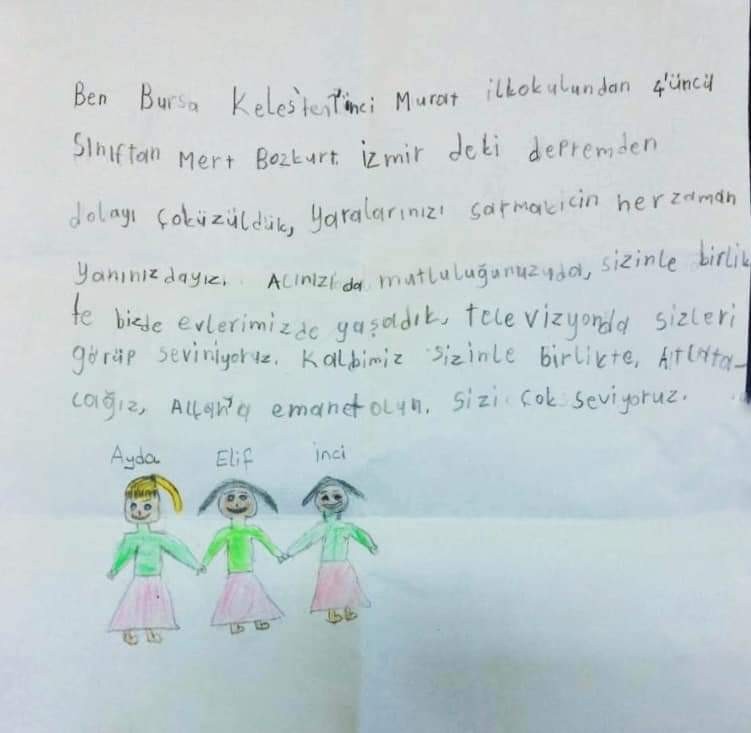 Ben Bursa Keles'ten 1'inci Murat ilkokulundan 4'üncü
Sınıftan Mert Bozkurt. İzmir deki depremden
dolayı çoküzüldük, Yaralarınızı sarmakicin her zaman
Yanınız dayız. Acınızı da mutluluğunuzuda, sizinle birlik
te bizde evlerimizde yaşadık, tele vizyonda sizleri
görüp seviniyoruz. Kalbimiz sizinle birlikte, Atlata-
cağız, Allah'a emanet olun. Sizi çok seviyoruz.
Ayda Elif inci